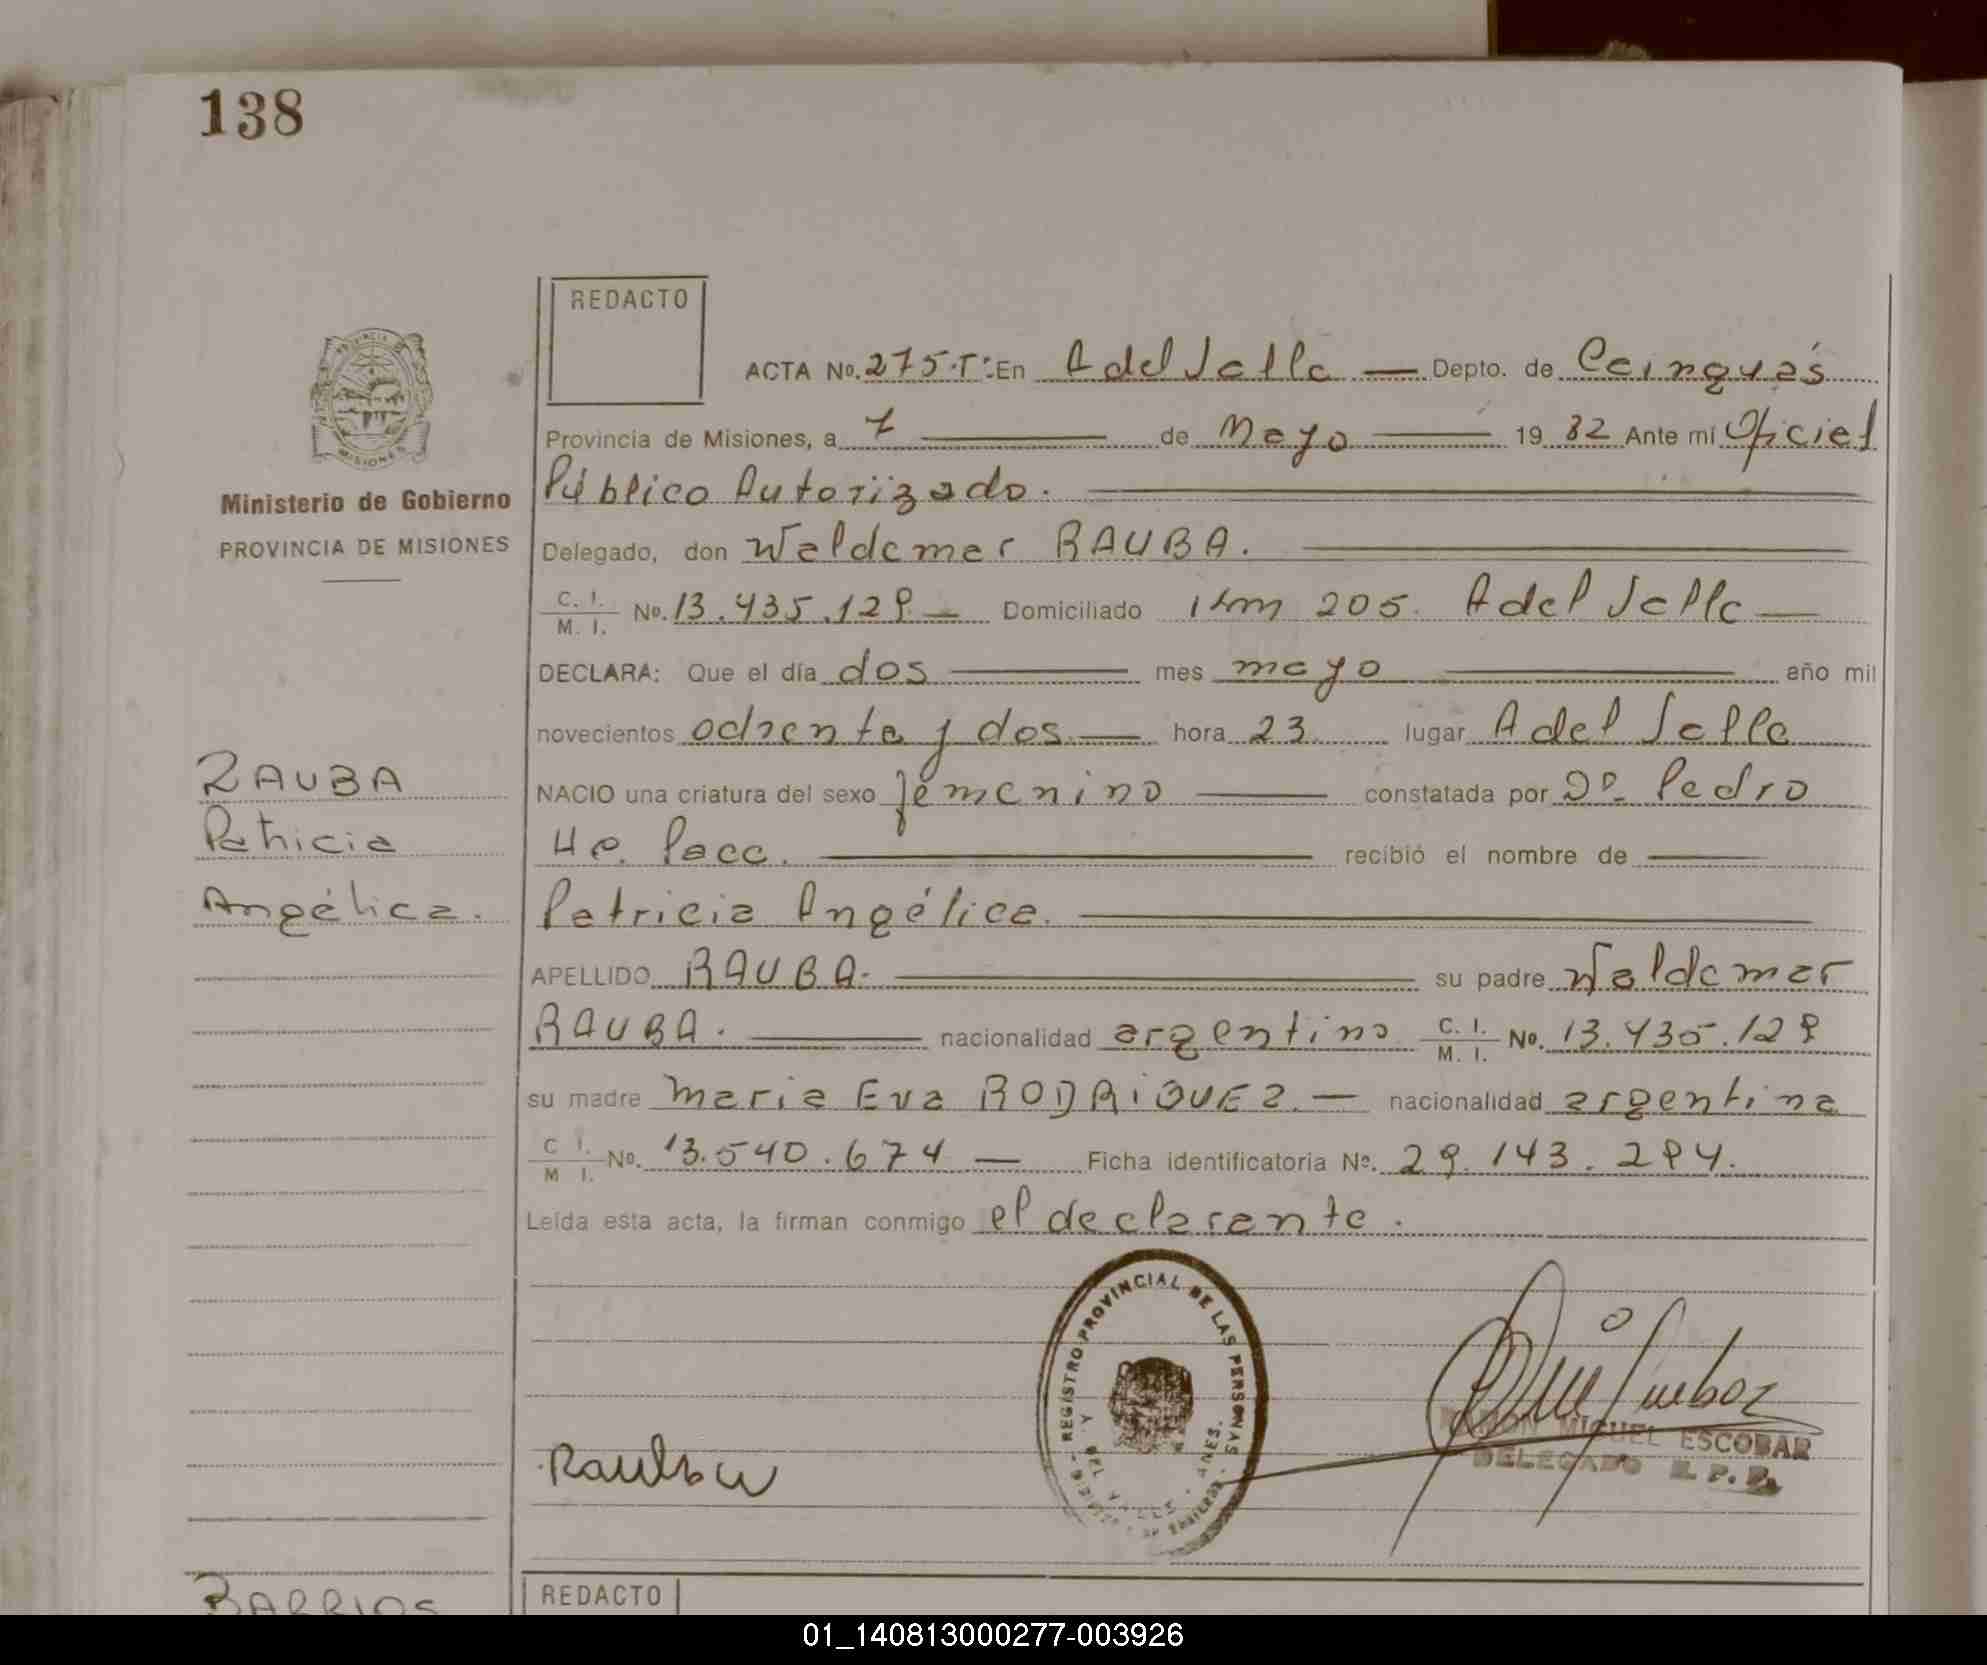 138
REDACTO
ACTA No. 275.Tº: En A del Valle — Depto. de Cainguás
Provincia de Misiones, a 7 de Mayo 19 82 Ante mi Oficial
Público Autorizado.
Ministerio de Gobierno
PROVINCIA DE MISIONES
Delegado, don Waldemar RAUBA.
C. I.
M. I. No. 13.435.129 — Domiciliado Km 205. A del Valle —
DECLARA: Que el día dos mes mayo año mil
novecientos ochenta y dos — hora 23 lugar A del Valle
NACIO una criatura del sexo femenino constatada por Dº Pedro
recibió el nombre de
Patricia Angélica.
RAUBA
Patricia
Angélica.
APELLIDO RAUBA. su padre Waldemar
RAUBA. nacionalidad argentino C. I.
M. I. No. 13.435.129
su madre Maria Eva RODRIGUEZ. — nacionalidad argentina
C I.
M I. No. 13.540.674 — Ficha identificatoria Nº. 29.143.294.
Leída esta acta, la firman conmigo el declarante.
REGISTRO PROVINCIAL DE LAS PERSONAS
DEL VALLE
Rauba
RAMON MIGUEL ESCOBAR
DELEGADO R. P. P.
BARRIOS
REDACTO
01_140813000277-003926